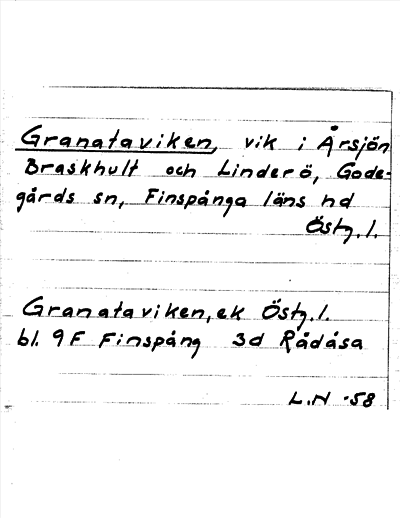 Granataviken, vik i Årsjön
Braskhult och Linderö, Gode-
gårds sn, Finspånga läns hd
Östg.l.
Granataviken, ek Östg.l.
bl. 9F Finspång 3d Rådåsa
L.N -58